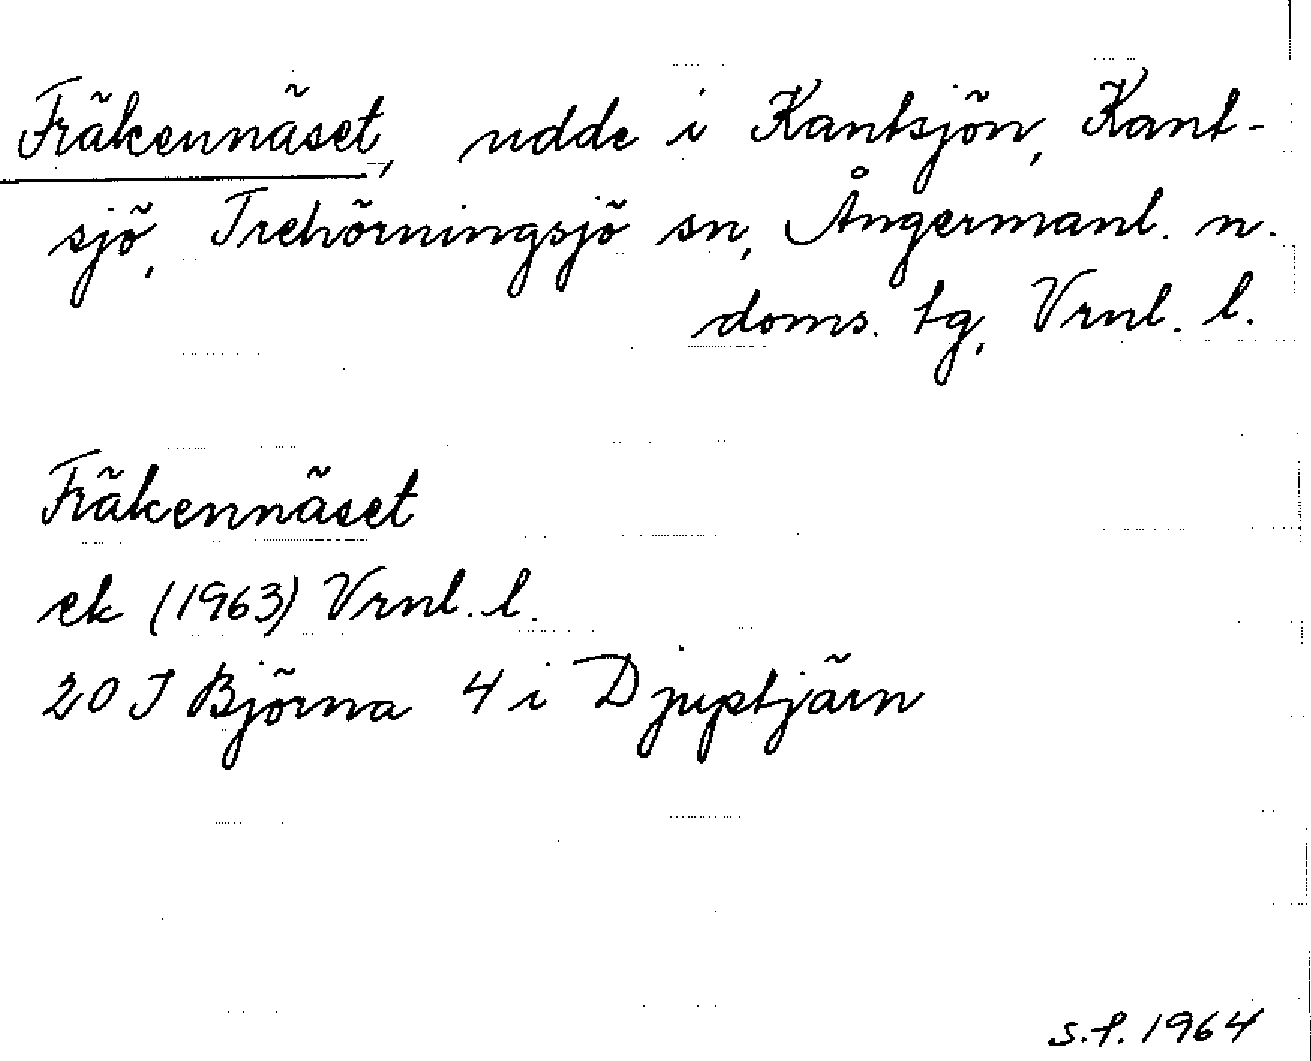 Fräkennäset, udde i Kantsjön, Kant-
sjö, Trehörningsjö sn, Ångermanl. n.
doms. tg, Vrnl. l.
Fräkennäset
ek (1963) Vrnl. l.
20 J Björna 4 i Djuptjärn
S.P. 1964